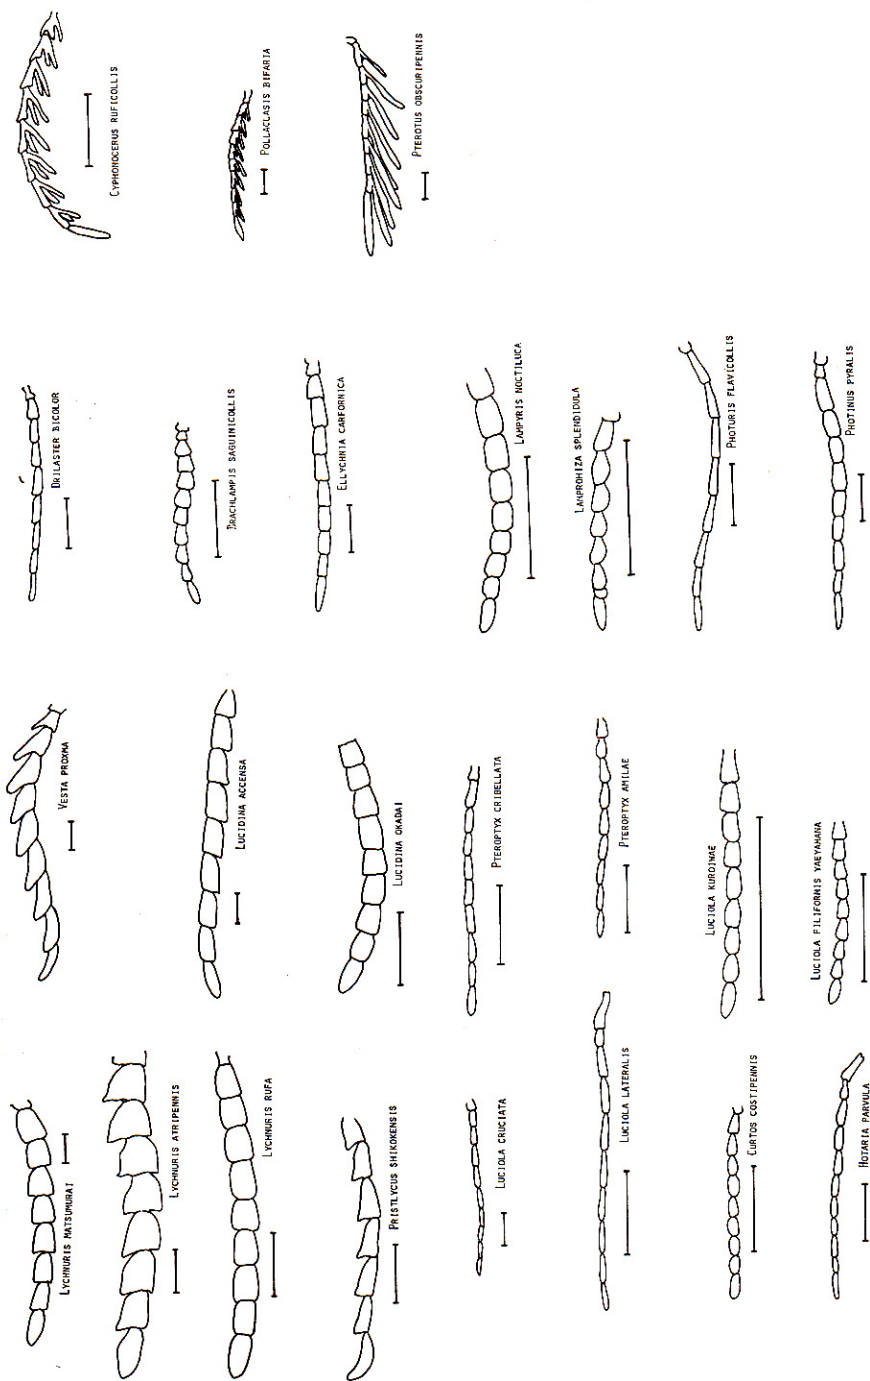 CYPHONOCERUS RUFICOLLIS
POLLACLASIS BIFARIA
PTEROTUS OBSCURIPENNIS
DRILASTER BICOLOR
BRACHLAMPIS SAGUINICOLLIS
ELLYCHNIA CARFORNICA
LAMPYRIS NOCTILUCA
LAMPROHIZA SPLENDIDULA
PHOTURIS FLAVICOLLIS
PHOTINUS PYRALIS
VESTA PROXMA
LUCIDINA ACCENSA
LUCIDINA OKADAI
PTEROPTYX CRIBELLATA
PTEROPTYX AMILAE
LUCIOLA KUROIWAE
LUCIOLA FILIFORMIS YAEYAMANA
LYCHNURIS MATSUMURAI
LYCHNURIS ATRIPENNIS
LYCHNURIS RUFA
PRISTLYCUS SHIKOKENSIS
LUCIOLA CRUCIATA
LUCIOLA LATERALIS
CURTOS COSTIPENNIS
HOTARIA PARVULA